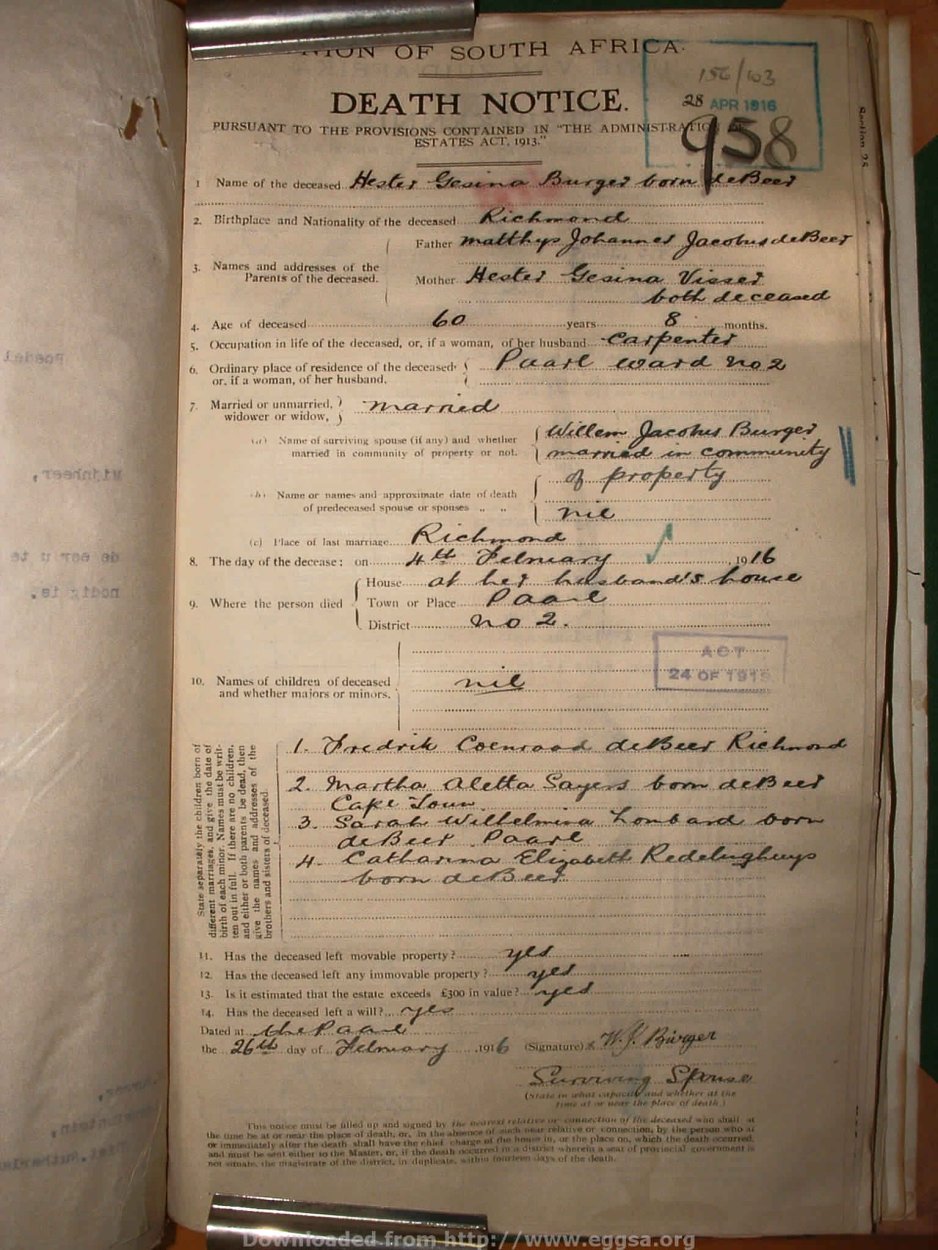 UNION OF SOUTH AFRICA.
156/103
28 APR 1916
958
DEATH NOTICE.
PURSUANT TO THE PROVISIONS CONTAINED IN "THE ADMINISTRATION OF
ESTATES ACT, 1913."
Section 25
1 Name of the deceased Hester Gesina Burger born de Beer
2. Birthplace and Nationality of the deceased Richmond
3. Names and addresses of the Parents of the deceased.
Father Matthys Johannes Jacobus de Beer
Mother Hester Gesina Visser
both deceased
4. Age of deceased 60 years 8 months.
5. Occupation in life of the deceased, or, if a woman, of her husband Carpenter
6. Ordinary place of residence of the deceased, or, if a woman, of her husband. Paarl ward no 2
7. Married or unmarried, widower or widow, married
(a) Name of surviving spouse (if any) and whether married in community of property or not.
Willem Jacobus Burger
married in community
of property
(b) Name or names and approximate date of death of predeceased spouse or spouses " "
nil
(c) Place of last marriage Richmond
8. The day of the decease: on 4th February 1916
9. Where the person died
House at her husband's house
Town or Place Paarl
District no 2.
ACT
24 OF 1915
10. Names of children of deceased and whether majors or minors.
nil
State separately the children born of
different marriages, and give the date of
birth of each minor. Names must be writ-
ten out in full. If there are no children,
and either or both parents be dead, then
give the names and addresses of the
brothers and sisters of deceased.
1. Fredrik Coenraad de Beer Richmond
2. Martha Aletta Sayers born de Beer
Cape Town
3. Sarah Wilhelmina Lombard born
de Beer Paarl
4. Catharina Elizabeth Redelinghuys
born de Beer
11. Has the deceased left movable property? yes
12. Has the deceased left any immovable property? yes
13. Is it estimated that the estate exceeds £300 in value? yes
14. Has the deceased left a will? yes
Dated at the Paarl
the 26th day of February 1916 (Signature) x W. J. Burger
Surviving Spouse
(State in what capacity and whether at the
time at or near the place of death.)
This notice must be filled up and signed by the nearest relative or connection of the deceased who shall at
the time be at or near the place of death, or, in the absence of such near relative or connection, by the person who at
or immediately after the death shall have the chief charge of the house in, or the place on, which the death occurred,
and must be sent either to the Master, or, if the death occurred in a district wherein a seat of provincial government is
not situate, the magistrate of the district, in duplicate, within fourteen days of the death.
Downloaded from http://www.eggsa.org